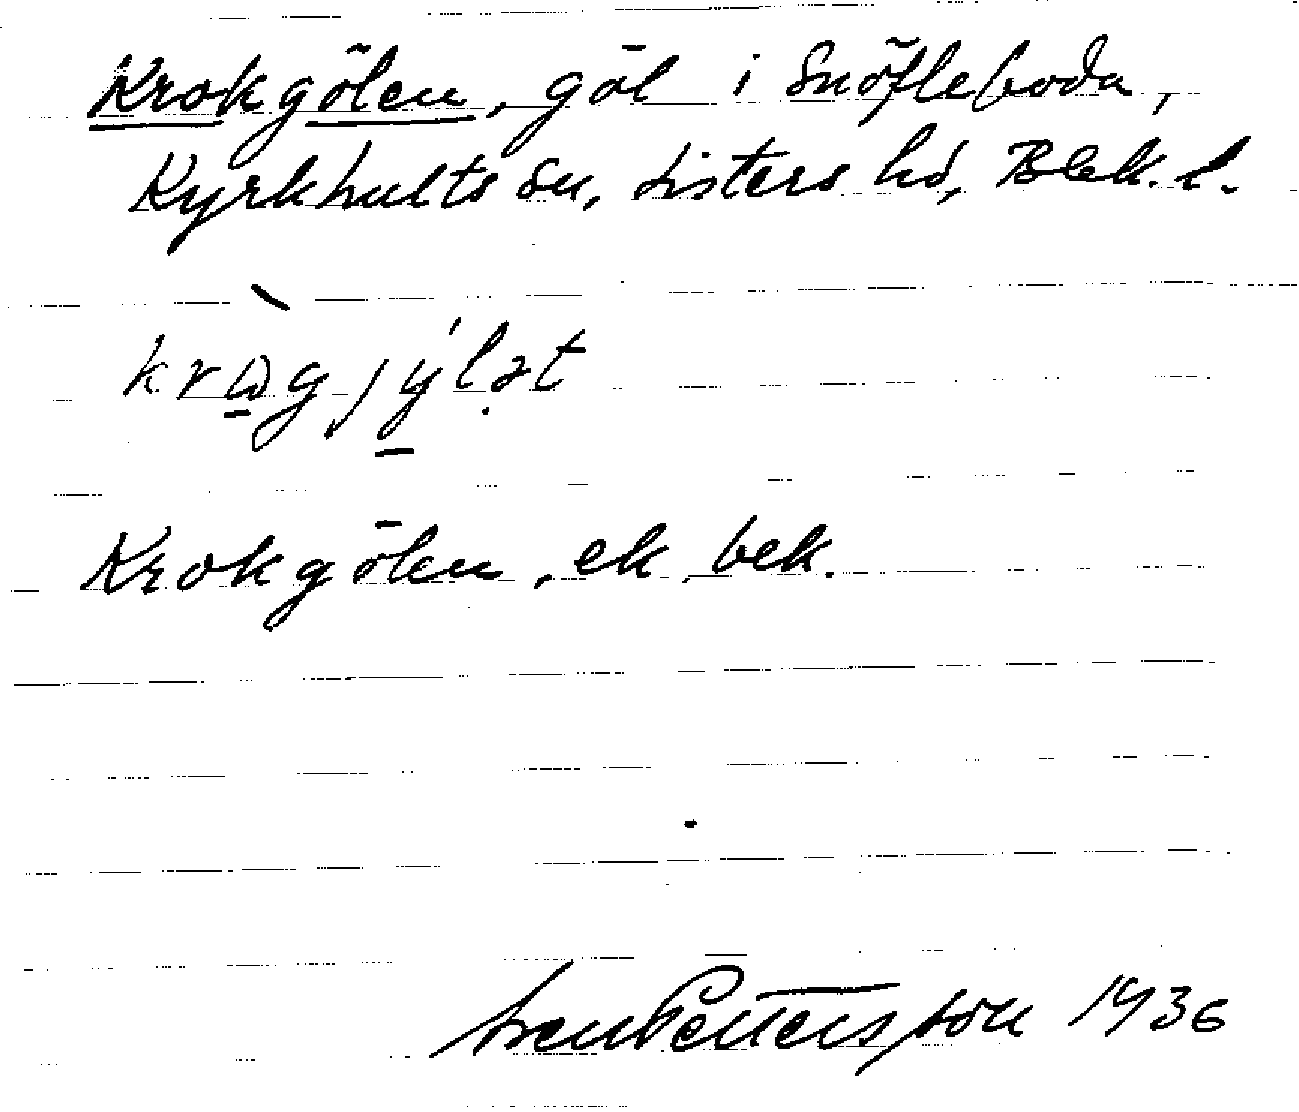 Krokgölen, göl i Snöfleboda,
Kyrkhults sn, Listers hd, Blek. l.
kràgjýl̩ət
Krokgölen, ek. bek.
Sven Pettersson 1936